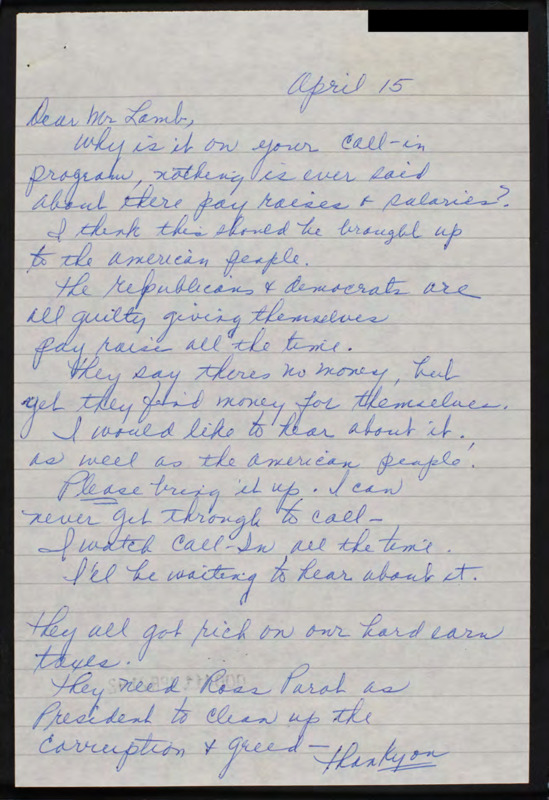 April 15
Dear Mr Lamb,
Why is it on your call-in
program, nothing is ever said
about there pay raises & salaries?
I think this should be brought up
to the american people.
The republicans & democrats are
all guilty giving themselves
pay raise all the time.
They say theres no money, but
yet they find money for themselves.
I would like to hear about it.
as well as the american people.
Please bring it up. I can
never get through to call-
I watch Call-In all the time.
I'll be waiting to hear about it.
They all got rich on our hard earn
taxes.
They need Ross Parot as
President to clean up the
Corruption & greed-
thankyou